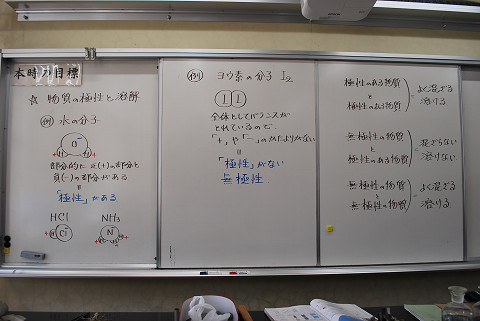 本時の目標
☆ 物質の極性と溶解
例 水の分子
O
H H
+ +
部分的に正(+)の部分と
負(-)の部分がある
「極性」がある
HCl
H Cl
+
NH₃
N
H H H
+ + +
例 ヨウ素の分子 I₂
I I
全体としてバランスが
とれているので、
「+」や「-」のかたよりがない
「極性」がない
無極性
極性のある物質
と
極性のある物質
= よく混ざる
溶ける
無極性の物質
と
極性のある物質
= 混ざらない
溶けない
無極性の物質
と
無極性の物質
= よく混ざる
溶ける